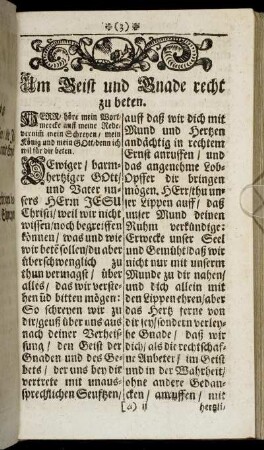 (3)
Um Geist und Gnade recht
zu beten.
HERR, höre mein Wort,
mercke auff meine Rede,
vernim mein Schreyen, mein
König und mein GOtt, denn ich
wil für dir beten.
Ewiger, barm-
hertziger GOtt,
und Vater un-
sers HErrn JESU
Christi, weil wir nicht
wissen, noch begreiffen
können, was und wie
wir betē sollen, du aber
überschwenglich zu
thun vermagst, über
alles, das wir verste-
hen ūd bitten mögen:
So schreyen wir zu
dir, geuß über uns aus
nach deiner Verheis-
sung, den Geist der
Gnaden und des Ge-
bets, der uns bey dir
vertrete mit unaus-
sprechlichen Seufftzen,
auff daß wir dich mit
Mund und Hertzen
andächtig in rechtem
Ernst anruffen, und
das angenehme Lob-
Opffer dir bringen
mögen. HErr, thu un-
ser Lippen auff, daß
unser Mund deinen
Ruhm verkündige:
Erwecke unser Seel
und Gemüth, daß wir
nicht nur mit unserm
Munde zu dir nahen,
und dich allein mit
den Lippen ehren, aber
das Hertz ferne von
dir sey, sondern verley-
he Gnade, daß wir
dich, als die rechtschaf-
ne Anbeter, im Geist
und in der Wahrheit,
ohne andere Gedan-
cken, anruffen, mit
(a) ij
hertzli-